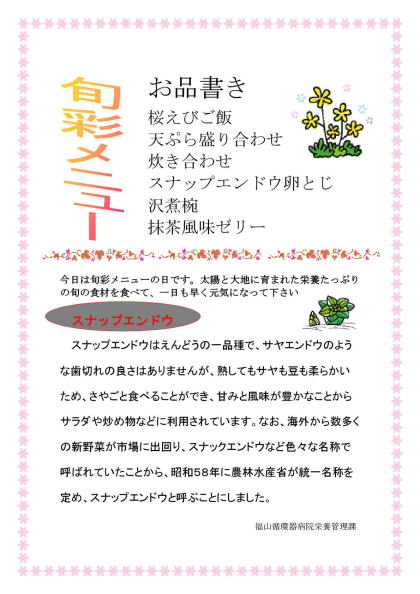 旬彩メニュー
お品書き
桜えびご飯
天ぷら盛り合わせ
炊き合わせ
スナップエンドウ卵とじ
沢煮椀
抹茶風味ゼリー
今日は旬彩メニューの日です。太陽と大地に育まれた栄養たっぷり
の旬の食材を食べて、一日も早く元気になって下さい
スナップエンドウ
スナップエンドウはえんどうの一品種で、サヤエンドウのよう
な歯切れの良さはありませんが、熟してもサヤも豆も柔らかい
ため、さやごと食べることができ、甘みと風味が豊かなことから
サラダや炒め物などに利用されています。なお、海外から数多く
の新野菜が市場に出回り、スナックエンドウなど色々な名称で
呼ばれていたことから、昭和５８年に農林水産省が統一名称を
定め、スナップエンドウと呼ぶことにしました。
福山循環器病院栄養管理課